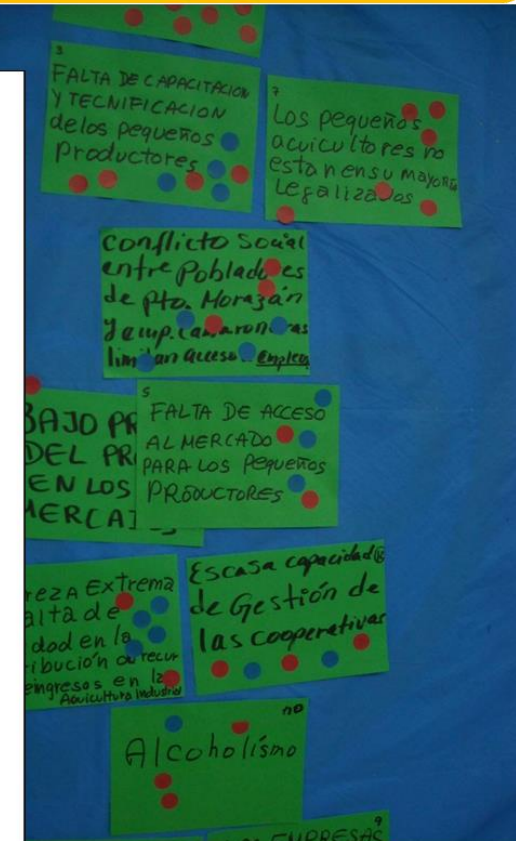 3
FALTA DE CAPACITACION
Y TECNIFICACION
delos pequeños
Productores
7
Los pequeños
acuicultores no
estan en su mayoria
Legalizados
conflicto Social
entre Pobladores
de pto. Morazán
y emp. camaroneras
limitan acceso empleo
BAJO PR
DEL PR
EN LOS
MERCA
5
FALTA DE ACCESO
AL MERCADO
PARA LOS Pequeños
PRODUCTORES
EZA EXTrema
alta de
dad en la
ribución de recur
eingresos en la
Aquicultura Industrial
Escasa capacidad
8
de Gestión de
las cooperativas
10
Alcoholismo
9
EMPRESAS